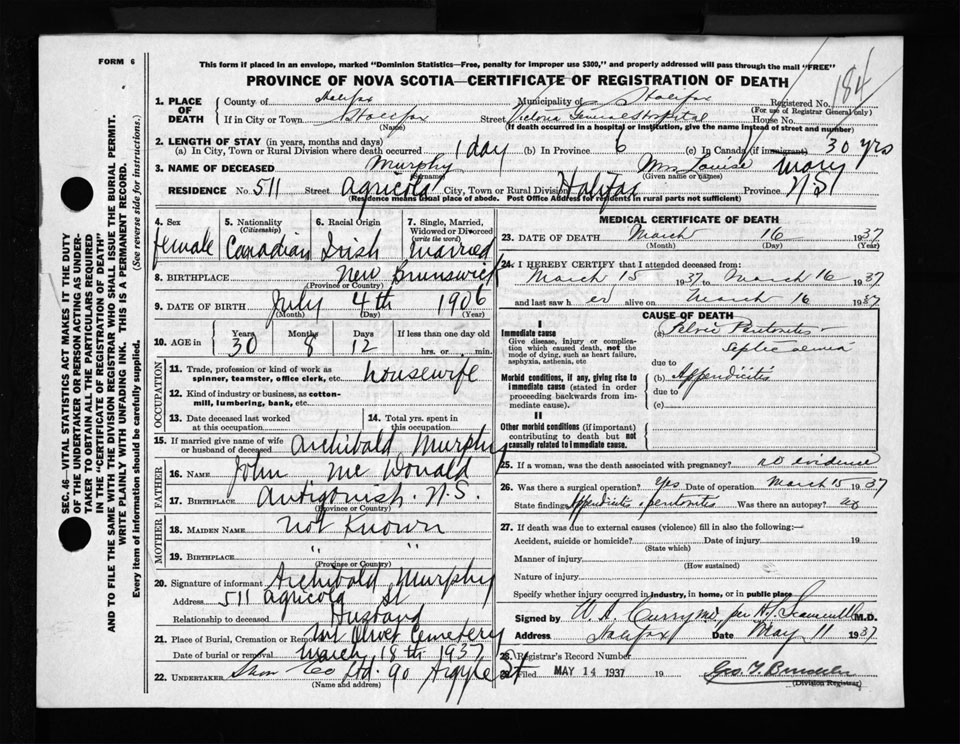 FORM 6
This form if placed in an envelope, marked "Dominion Statistics—Free, penalty for improper use $300," and properly addressed will pass through the mail "FREE"
PROVINCE OF NOVA SCOTIA—CERTIFICATE OF REGISTRATION OF DEATH
184
1. PLACE OF DEATH
County of Halifax Municipality of Halifax Registered No.
(For use of Registrar General only)
If in City or Town Halifax Street Victoria General Hospital House No.
(Name) (If death occurred in a hospital or institution, give the name instead of street and number)
2. LENGTH OF STAY (in years, months and days)
(a) In City, Town or Rural Division where death occurred 1 day (b) In Province 6 (c) In Canada (if immigrant) 30 yrs
3. NAME OF DECEASED Murphy Mrs Louise Mary
(Surname) (Given name or names)
RESIDENCE No. 511 Street Agricola City, Town or Rural Division Halifax Province NS
(Residence means usual place of abode. Post Office Address for residents in rural parts not sufficient)
4. Sex
female
5. Nationality
(Citizenship)
Canadian
6. Racial Origin
Irish
7. Single, Married, Widowed or Divorced
(write the word)
Married
8. BIRTHPLACE New Brunswick
(Province or Country)
9. DATE OF BIRTH July 4th 1906
(Month) (Day) (Year)
10. AGE in
Years Months Days If less than one day old
30 8 12 hrs. or min.
OCCUPATION
11. Trade, profession or kind of work as spinner, teamster, office clerk, etc. housewife
12. Kind of industry or business, as cotton-mill, lumbering, bank, etc.
13. Date deceased last worked at this occupation
14. Total yrs. spent in this occupation
15. If married give name of wife or husband of deceased Archibald Murphy
FATHER
16. NAME John McDonald
17. BIRTHPLACE Antigonish. N.S.
(Province or Country)
MOTHER
18. MAIDEN NAME Not Known
19. BIRTHPLACE " "
(Province or Country)
20. Signature of informant Archibald Murphy
Address 511 Agricola St
Relationship to deceased Husband
21. Place of Burial, Cremation or Removal Mt Olivet Cemetery
Date of burial or removal March 18th 1937
22. UNDERTAKER Snow Co Ltd. 90 Argyle St
(Name and address)
MEDICAL CERTIFICATE OF DEATH
23. DATE OF DEATH March 16 1937
(Month) (Day) (Year)
24. I HEREBY CERTIFY that I attended deceased from:
March 15 1937 to March 16 1937
and last saw her alive on March 16 1937
CAUSE OF DEATH
I
Immediate cause
Give disease, injury or complication which caused death, not the mode of dying, such as heart failure, asphyxia, asthenia, etc
(a) Pelvic Peritonitis
Septic
due to
Morbid conditions, if any, giving rise to immediate cause (stated in order proceeding backwards from immediate cause).
(b) Appendicitis
due to
(c)
II
Other morbid conditions (if important) contributing to death but not causally related to immediate cause.
25. If a woman, was the death associated with pregnancy? no evidence
26. Was there a surgical operation? Yes Date of operation March 15 1937
State findings Appendicitis & peritonitis Was there an autopsy? no
27. If death was due to external causes (violence) fill in also the following:—
Accident, suicide or homicide? Date of injury 19
(State which)
Manner of injury
(How sustained)
Nature of injury
Specify whether injury occurred in industry, in home, or in public place
Signed by W. A. Curry MD per M.D.
Address Halifax Date May 11 1937
28. Registrar's Record Number
29. Filed MAY 14 1937 19
(Division Registrar)
SEC. 46—VITAL STATISTICS ACT MAKES IT THE DUTY
OF THE UNDERTAKER OR PERSON ACTING AS UNDERTAKER
TO OBTAIN ALL THE PARTICULARS REQUIRED
IN THE "CERTIFICATE OF REGISTRATION OF DEATH"
AND TO FILE THE SAME WITH THE DIVISION REGISTRAR WHO SHALL ISSUE THE BURIAL PERMIT.
WRITE PLAINLY WITH UNFADING INK. THIS IS A PERMANENT RECORD.
Every item of information should be carefully supplied. (See reverse side for instructions.)